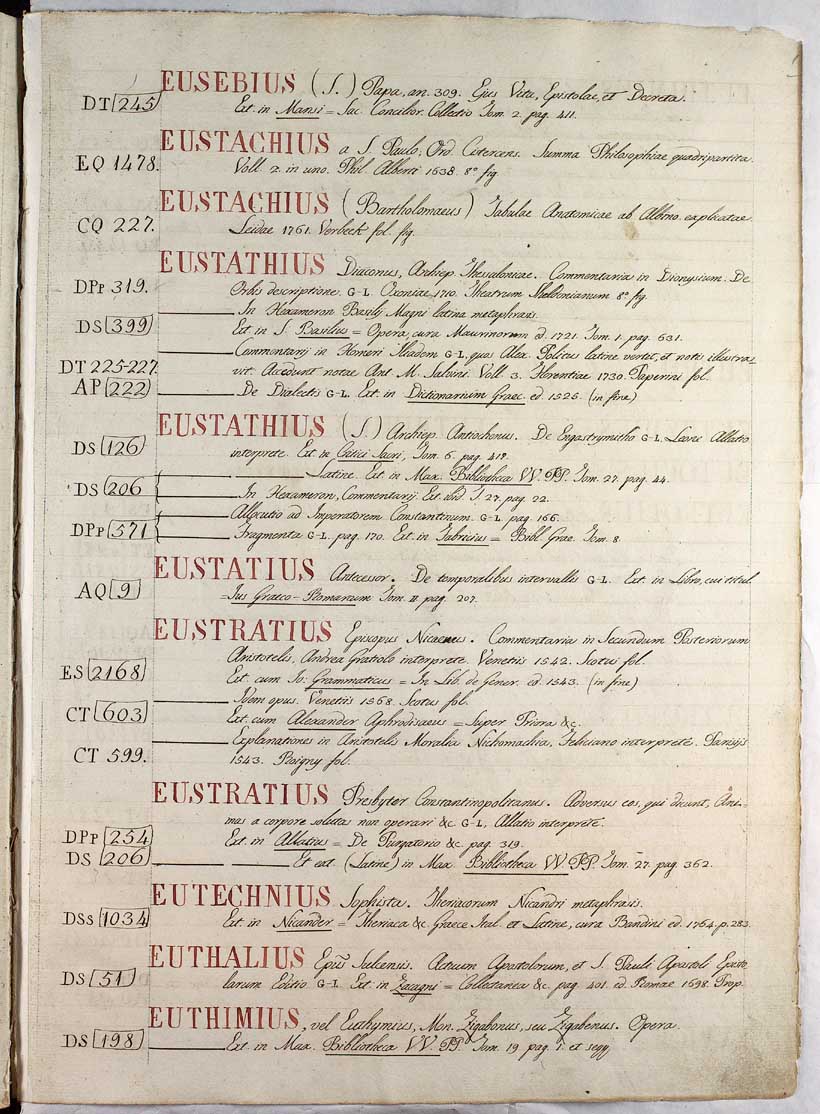 EUSEBIUS (S.) Papa, an. 309. Ejus Vita, Epistolae, et Decreta.
DT 245 Ext. in Mansi = Sac. Concilior. Collectio Tom. 2. pag. 411.
EUSTACHIUS a S. Paulo, Ord. Cisterciens. Summa Philosophiae quadripartita.
EQ 1478. Voll. 2. in uno. Phil. Alberti 1638. 8° fig.
EUSTACHIUS (Bartholomaeus) Tabulae Anatomicae ab Albino explicatae.
CQ 227. Leidae 1761. Verbeek fol. fig.
EUSTATHIUS Diaconus, Archiep. Thessalonicae. Commentaria in Dionysium. De
DPp 319. Orbis descriptione. G-L. Oxoniae 1710. Theatrum Sheldonianum 8° fig.
In Hexameron Basilij Magni latina metaphrasis.
DS 399 Ext. in S. Basilius = Opera, cura Maurinorum ed. 1721. Tom. 1. pag. 631.
Commentarij in Homeri Iliadem G-L, quos Alex. Politus latine vertit, et notis illustra-
DT 225-227. vit. Accedunt notae Ant. M. Salvini. Voll. 3. Florentiae 1730. Paperini fol.
AP 222 De Dialectis G-L. Ext. in Dictionarium Graec. ed. 1525. (in fine)
EUSTATHIUS (S.) Archiep. Antiochenus. De Engastrymitho G-L. Leone Allatio
DS 126 interprete. Ext. in Critici Sacri, Tom. 6. pag. 418.
Latine. Ext. in Max. Bibliotheca VV. PP. Tom. 27. pag. 44.
DS 206 In Hexameron, Commentarij. Ext. ibid. T. 27. pag. 22.
Allocutio ad Imperatorem Constantinum. G-L. pag. 166.
DPp 571 Fragmenta G-L. pag. 170. Ext. in Fabricius = Bibl. Grae. Tom. 8.
EUSTATIUS Antecessor. De temporalibus intervallis G-L. Ext. in Libro, cui titul.
AQ 9 = Jus Graeco-Romanum Tom. II. pag. 207.
EUSTRATIUS Episcopus Nicaenus. Commentaria in Secundum Posteriorum
Aristotelis, Andrea Gratiolo interprete. Venetiis 1542. Scotus fol.
ES 2168 Ext. cum Io: Grammaticus = In Lib. de Gener. ed. 1543. (in fine)
Idem opus. Venetiis 1568. Scotus fol.
CT 603 Ext. cum Alexander Aphrodisaeus = Super Priora &c.
Explanationes in Aristotelis Moralia Nichomachia, Feliciano interprete. Parisijs
CT 599. 1543. Roigny fol.
EUSTRATIUS Presbyter Constantinopolitanus. Adversus eos, qui dicunt, Ani-
mas a corpore solutas non operari &c. G-L, Allatio interprete.
DPp 254 Ext. in Allatius = De Purgatorio &c. pag. 319.
DS 206 Et ext. (Latine) in Max. Bibliotheca VV. PP. Tom. 27. pag. 362.
EUTECHNIUS Sophista. Theriacorum Nicandri metaphrasis.
DSs 1034 Ext. in Nicander = Theriaca &c. Graece Ital. et Latine, cura Bandini ed. 1764. p. 283.
EUTHALIUS Epus Sulcensis. Actuum Apostolorum, et S. Pauli Apostoli Episto-
DS 51 larum Editio G-L. Ext. in Zacagni = Collectanea &c. pag. 401. ed. Romae 1698. Prop.
EUTHIMIUS, vel Euthymius, Mon. Zigabonus, seu Zigabenus. Opera.
DS 198 Ext. in Max. Bibliotheca VV. PP. Tom. 19. pag. 1. et seqq.